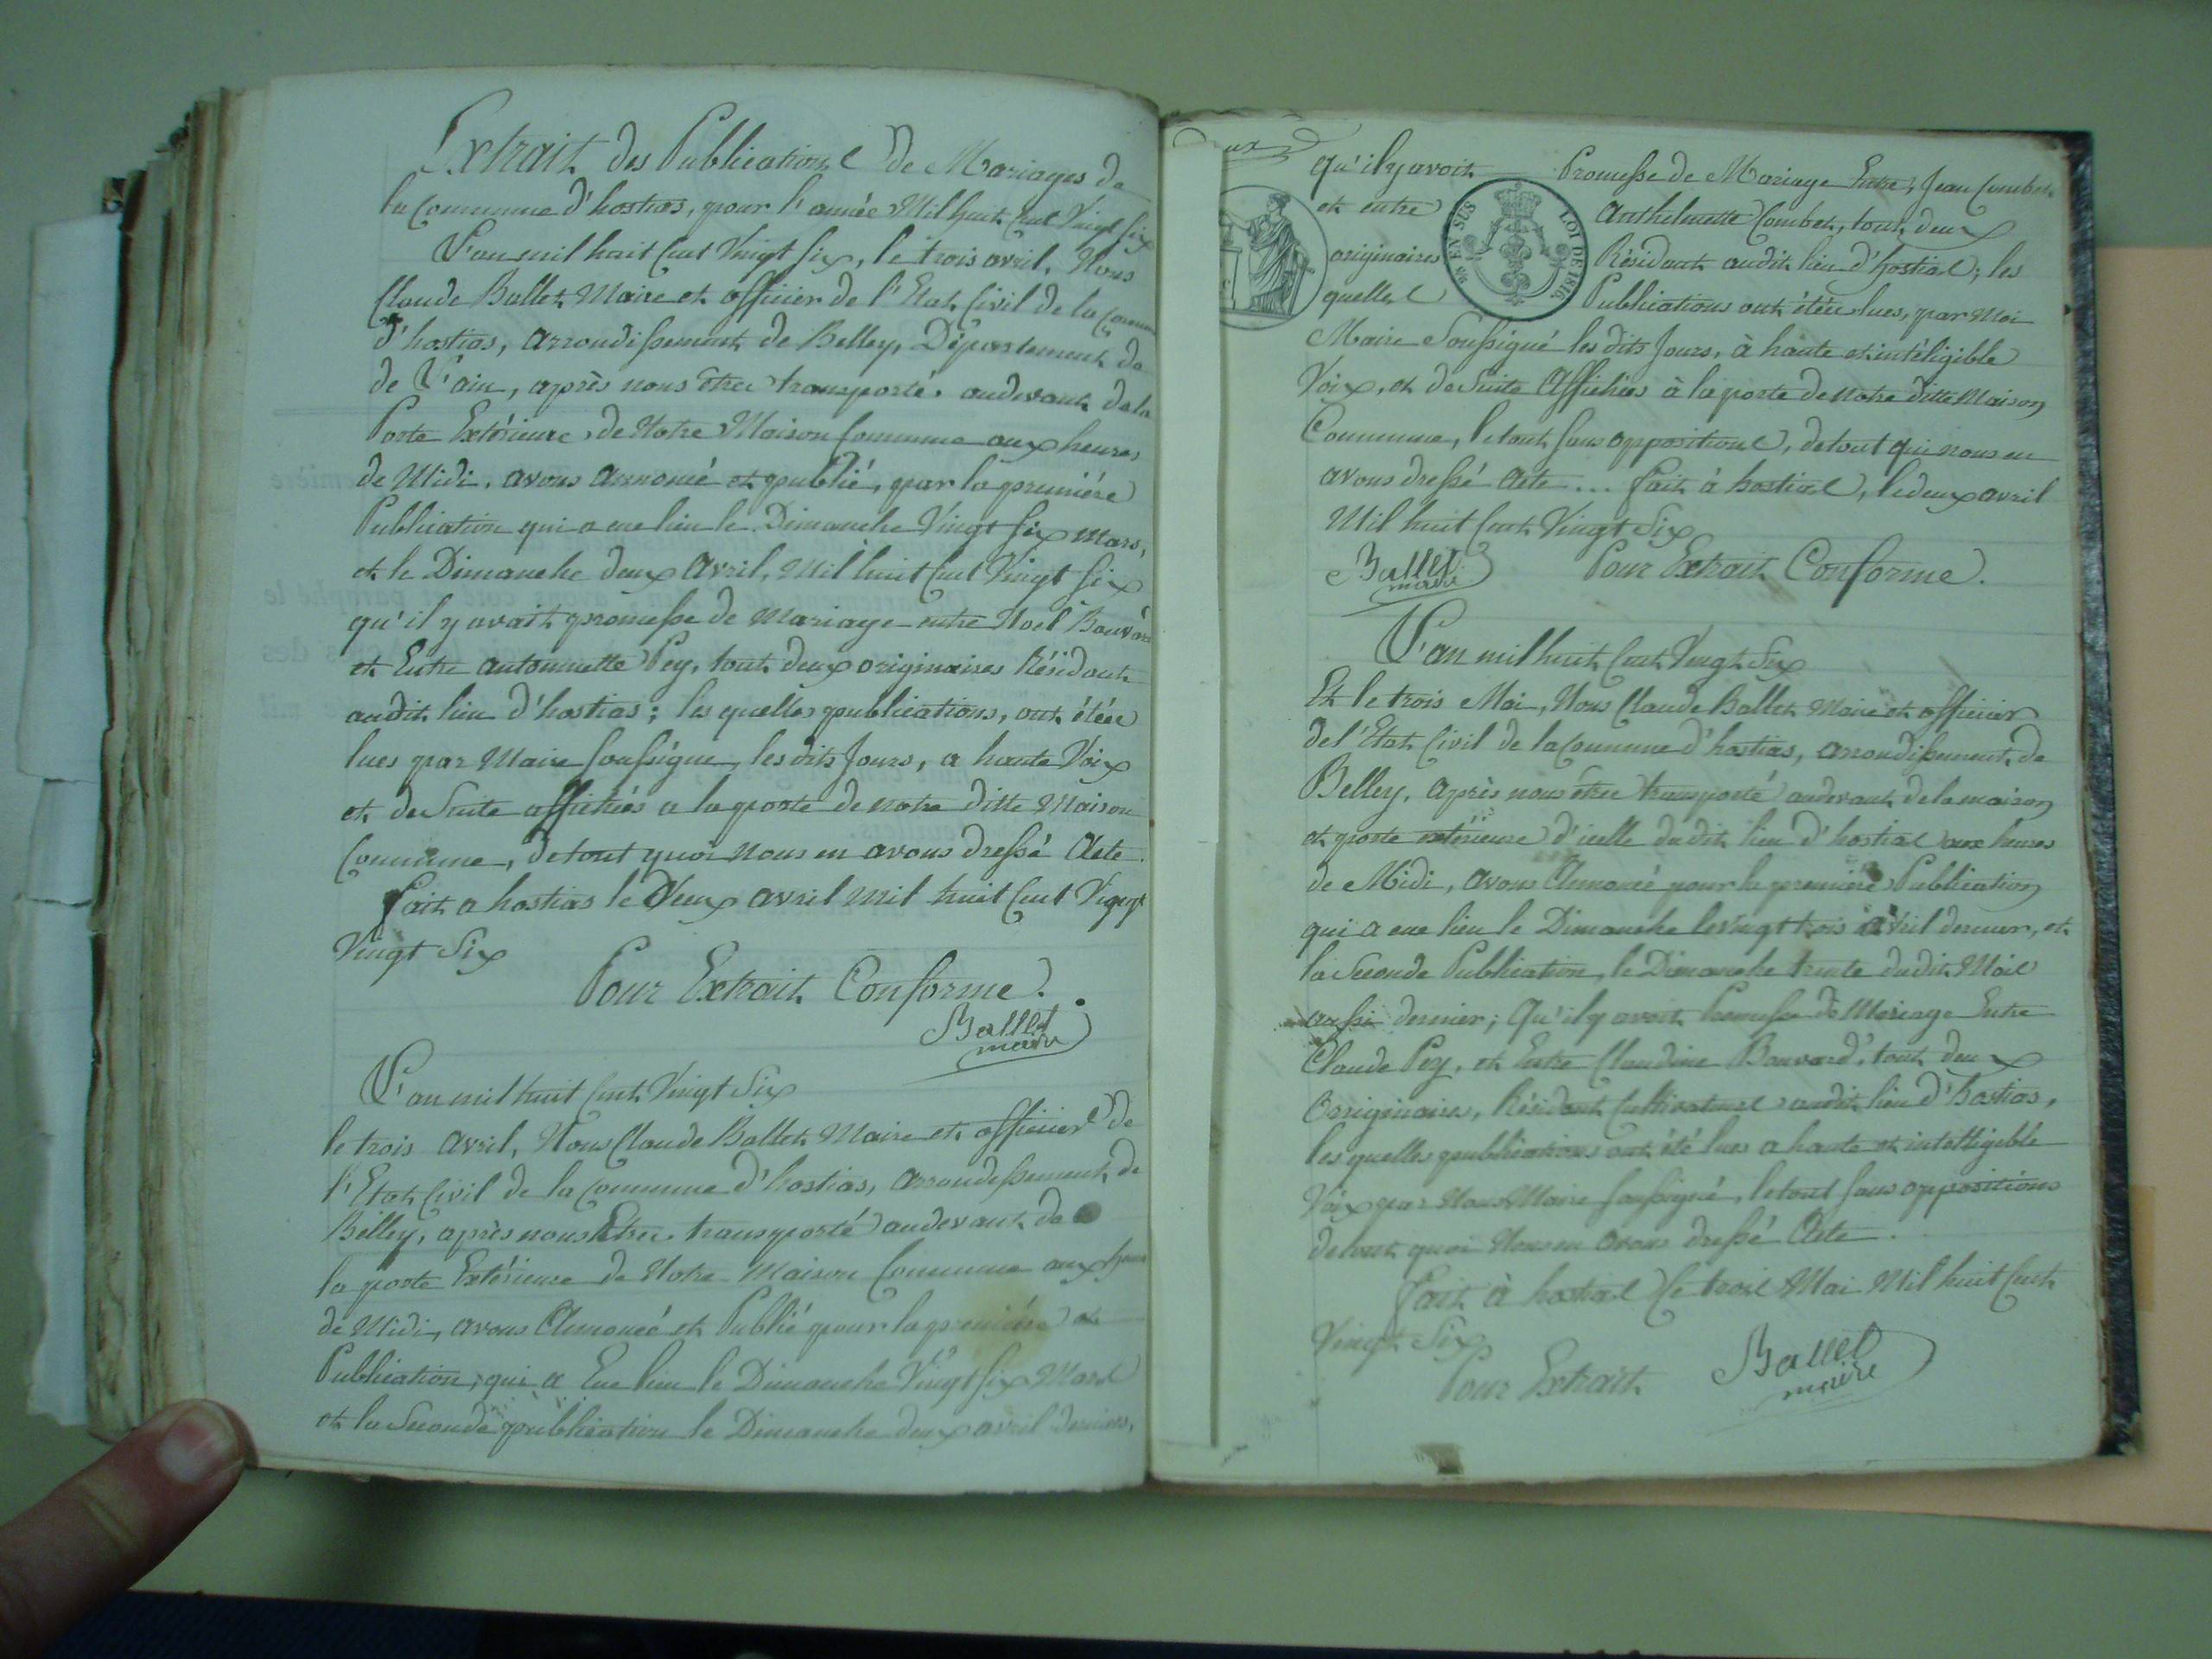 Extrait des Publications de Mariages de
la Commune d'hostias, pour l'année Mil huit Cent Vingt Six
L'an mil huit Cent Vingt Six, le trois avril, Nous
Claude Ballet Maire et officier de l'Etat Civil de la Commune
d'hostias, arrondissement de Belley, Département de
de L'ain, après nous être transporté audevant dela
Porte Extérieure de Notre Maison Commune aux heures
de Midi, avons annoncé et publié, par la première
Publication qui a eue lieu le Dimanche Vingt Six Mars,
et le Dimanche deux Avril, Mil huit Cent Vingt Six
qu'il y avait promesse de Mariage entre Noel Bouvard
et Entre antoinette Pey, tout deux originaires Résidant
audit lieu d'hostias; les quelles publications, ont étée
lues par Maire soussigné, les dits Jours, a haute Voix
et de Suite affichées a la porte de notre ditte Maison
Commune, de tout quoi nous en avons dressé Acte.
fait a hostias le Deux avril mil huit Cent
Vingt Six
Pour Extrait Conforme.
Ballet
maire
L'an mil huit Cent Vingt Six
le trois Avril, Nous Claude Ballet Maire et officier de
l'Etat Civil de la Commune d'hostias, arrondissement de
Belley, après nous Etre transporté audevant de
la porte Extérieure de Notre Maison Commune aux heures
de Midi, avons Annoncé et Publié pour la première
Publication, qui a Eue lieu le Dimanche Vingt Six Mars
et la Seconde publication le Dimanche deux avril derniers,
qu'il y avoit Promesse de Mariage Entre Jean Combet
et entre Anthelmette Combet, tout deux
originaires Résidant audit lieu d'hostias; les
quelles Publications ont étée lues, par Moi
EN SUS LOI DE 1816.
Maire Soussigné les dits Jours, à haute et inteligible
Voix, et de Suite Affichées à la porte de notre ditte Maison
Commune, le tout sans oppositions, de tout qui nous en
avons dressé Acte... fait à hostias, le deux avril
Mil huit Cent Vingt Six
Ballet Pour Extrait Conforme.
maire
L'an mil huit Cent Vingt Six
Et le trois Mai, Nous Claude Ballet Maire et officier
de l'Etat Civil de la Commune d'hostias, arrondissement de
Belley, Après nous être transporté audevant de la maison
et porte extérieure d'icelle dudit lieu d'hostias aux heures
de Midi, avons Annoncé pour la première Publication
qui a eue lieu le Dimanche le vingt trois avril dernier, et
la Seconde Publication, le Dimanche trente dudit Mois
aussi dernier; Qu'il y avoit Promesse de Mariage Entre
Claude Pey, et Entre Claudine Bouvard, tout deux
Originaires, Résidant Cultivateurs audit lieu d'hostias,
les quelles publications ont été lues a haute et intelligible
Voix par Nous Maire Soussigné, le tout sans oppositions
de tout quoi Nous en avons dressé Acte.
fait à hostias le trois Mai Mil huit Cent
Vingt Six
Pour Extrait Ballet
maire